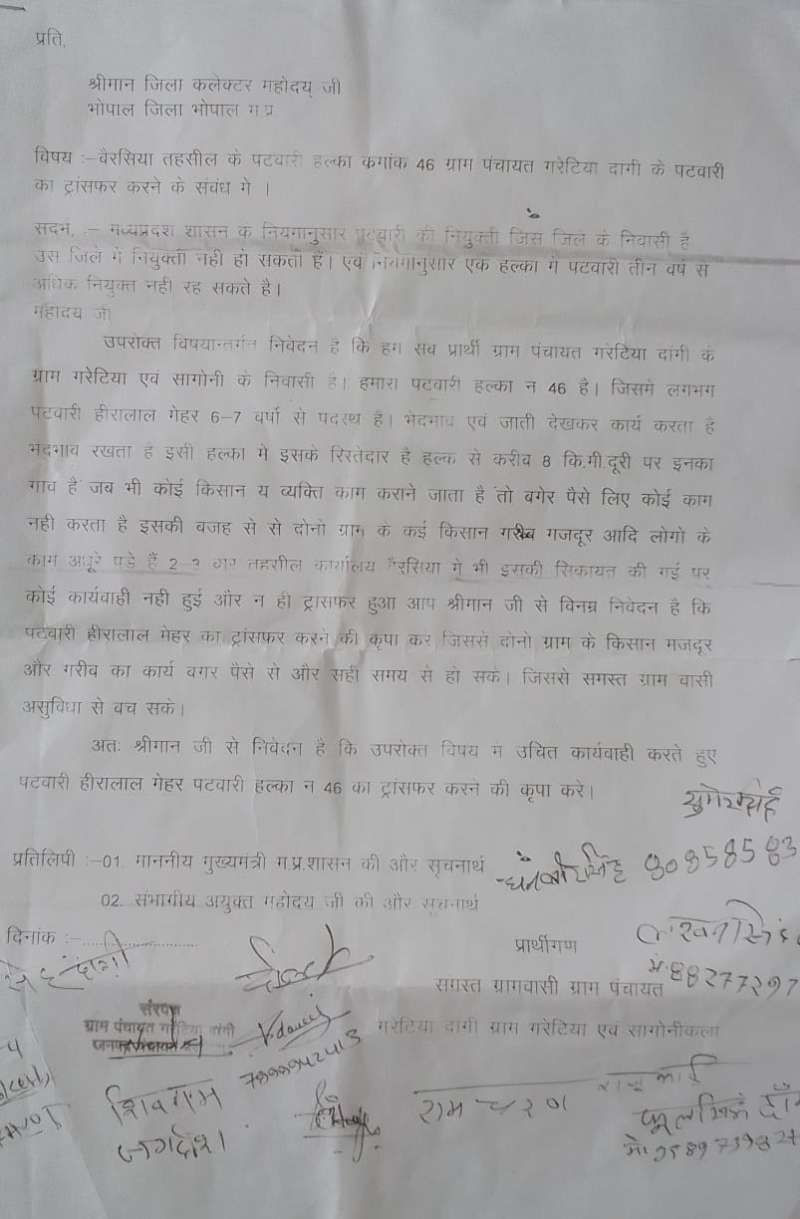 प्रति,
श्रीमान जिला कलेक्टर महोदय् जी
भोपाल जिला भोपाल म.प्र.
विषय :–वैरसिया तहसील के पटवारी हल्का कमांक 46 ग्राम पंचायत गरेटिया दागी के पटवारी
का ट्रांसफर करने के संवंध मे ।
सदर्भ, :– मध्यप्रदश शासन के नियमानुसार पटवारी की नियुक्ती जिस जिले के निवासी है
उस जिले मे नियुक्ती नही हो सकती हैं। एवं नियमानुसार एक हल्का मे पटवारी तीन वर्ष से
अधिक नियुक्त नही रह सकते है।
महोदय जी
उपरोक्त विषयान्तर्गत निवेदन है कि हम सब प्रार्थी ग्राम पंचायत गरेटिया दांगी के
ग्राम गरेटिया एवं सागोनी के निवासी है। हमारा पटवारी हल्का न 46 है। जिसमे लगभग
पटवारी हीरालाल मेहर 6–7 वर्षा से पदस्थ है। भेदभाव एवं जाती देखकर कार्य करता है
भेदभाव रखता है इसी हल्का मे इसके रिस्तेदार है हल्क से करीव 8 कि.मी.दूरी पर इनका
गाव है जव भी कोई किसान य व्यक्ति काम कराने जाता है तो वगेर पैसे लिए कोई काम
नही करता है इसकी वजह से से दोनो ग्राम के कई किसान गरीब मजदूर आदि लोगो के
काम अधूरे पडे हैं 2–3 वार तहसील कार्यालय वैरसिया मे भी इसकी सिकायत की गई पर
कोई कार्यवाही नही हुई और न ही ट्रासफर हुआ आप श्रीमान जी से विनम्र निवेदन है कि
पटवारी हीरालाल मेहर का ट्रांसफर करने की कृपा करे जिससे दोनो ग्राम के किसान मजदूर
और गरीव का कार्य वगर पैसे से और सही समय से हो सके। जिससे समस्त ग्राम वासी
असुविधा से वच सके।
अतः श्रीमान जी से निवेदन है कि उपरोक्त विषय मे उचित कार्यवाही करते हुए
पटवारी हीरालाल मेहर पटवारी हल्का न 46 का ट्रांसफर करने की कृपा करे।
प्रतिलिपी :–01. माननीय मुख्यमंत्री म.प्र.शासन की और सूचनार्थ
02. संभागीय अयुक्त महोदय जी की और सूचनार्थ
दिनांक :–........................
प्रार्थीगण
समस्त ग्रामवासी ग्राम पंचायत
गरेटिया दागी ग्राम गरेटिया एवं सागोनीकला
सरपंच
ग्राम पंचायत गरेटिया दांगी
शिवराम
जगदीश
राम चरण